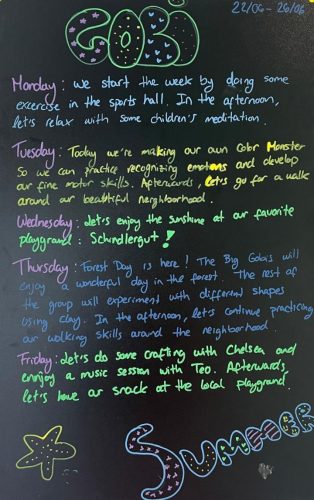 GOBI
22/06 - 26/06
Monday: We start the week by doing some
excercise in the sports hall. In the afternoon,
let's relax with some children's meditation.
Tuesday: Today we're making our own Color Monster
So we can practice recognizing emotions and develop
our fine motor skills. Afterwards, let's go for a walk
around our beautiful neighborhood.
Wednesday: Let's enjoy the sunshine at our favorite
playground: Schindlergut!
Thursday: Forest Day is here! The Big Gobis will
enjoy a wonderful day in the forest. The rest of
the group will experiment with different shapes
using clay. In the afternoon, let's continue practicing
our walking skills around the neighborhood.
Friday: Let's do some crafting with Chelsea and
ennjoy a music session with Teo. Afterwards,
let's have our snack at the local playground.
SUMMER